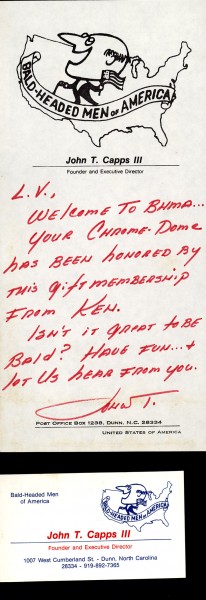 BALD-HEADED MEN OF AMERICA
John T. Capps III
Founder and Executive Director
L.V.,
WELCOME TO BHMA...
YOUR CHROME-DOME
HAS BEEN HONORED BY
THIS gift MEMBERSHIP
FROM KEN.
ISN'T IT GREAT TO BE
BALD? HAVE FUN...+
LOT US HEAR FROM YOU.
JOHN T.
POST OFFICE BOX 1238, DUNN, N.C. 28334
UNITED STATES OF AMERICA
Bald-Headed Men
of America
BALD-HEADED MEN OF AMERICA
John T. Capps III
Founder and Executive Director
1007 West Cumberland St. - Dunn, North Carolina
28334 - 919-892-7365